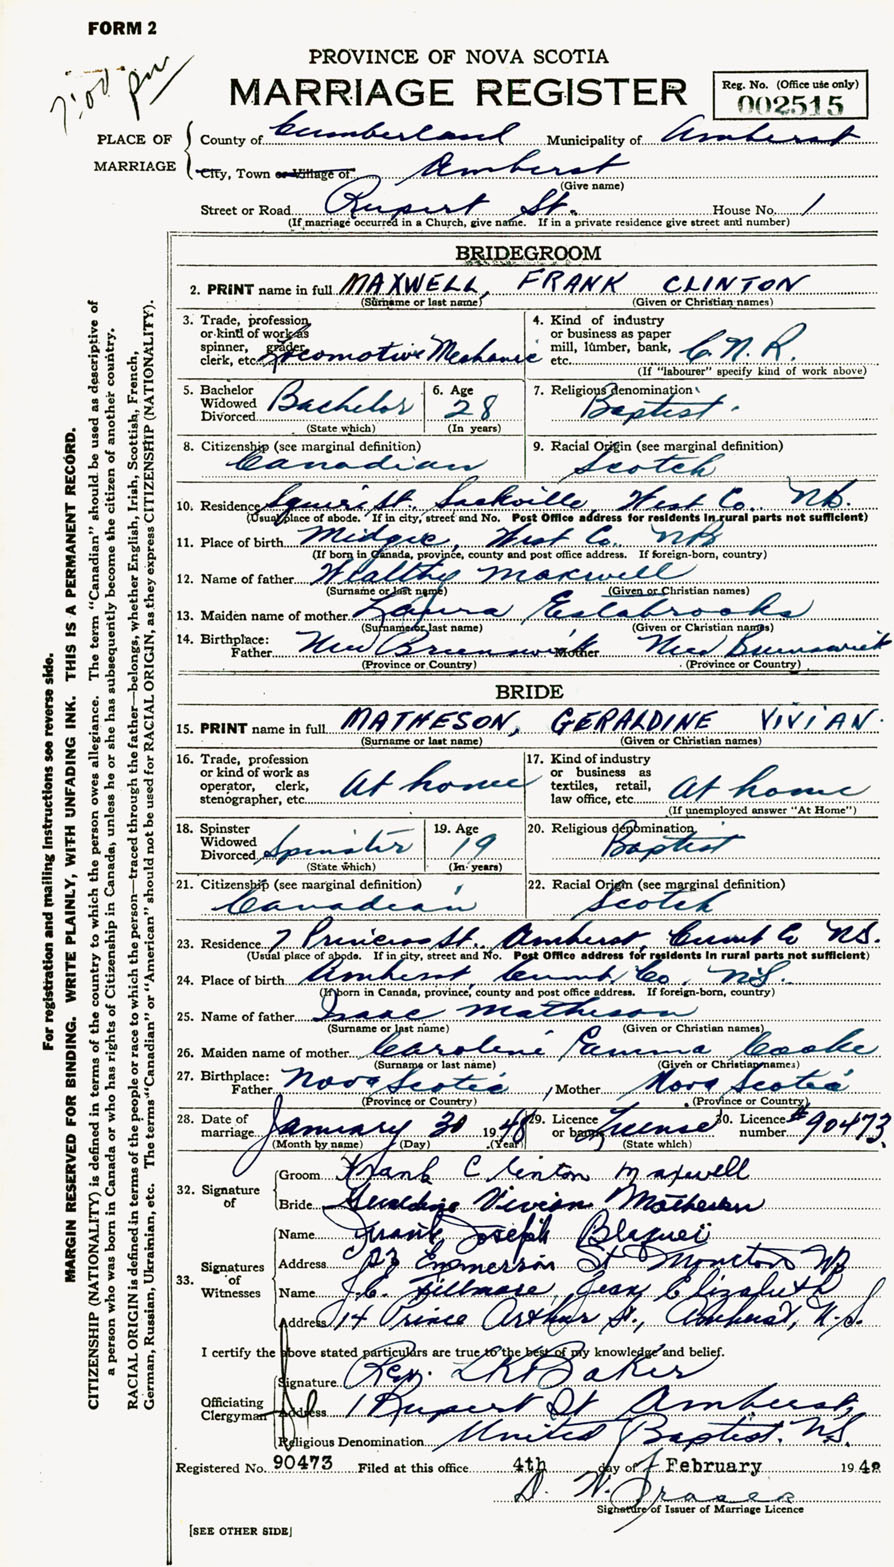 FORM 2
7:00 pm
PROVINCE OF NOVA SCOTIA
MARRIAGE REGISTER
Reg. No. (Office use only)
002515
PLACE OF MARRIAGE
County of Cumberland Municipality of Amherst
City, Town or Village of Amherst
(Give name)
Street or Road Rupert St. House No. 1
(If marriage occurred in a Church, give name. If in a private residence give street and number)
BRIDEGROOM
2. PRINT name in full MAXWELL, FRANK CLINTON
(Surname or last name) (Given or Christian names)
3. Trade, profession or kind of work as spinner, grader, clerk, etc. Locomotive Mechanic
4. Kind of industry or business as paper mill, lumber, bank, etc. C.N.R.
(If "labourer" specify kind of work above)
5. Bachelor Widowed Divorced Bachelor
(State which)
6. Age 28
(In years)
7. Religious denomination Baptist.
8. Citizenship (see marginal definition) Canadian
9. Racial Origin (see marginal definition) Scotch
10. Residence Squire St. Sackville West Co. NB.
(Usual place of abode. If in city, street and No. Post Office address for residents in rural parts not sufficient)
11. Place of birth Midgic, West Co. NB
(If born in Canada, province, county and post office address. If foreign-born, country)
12. Name of father Wealthy Maxwell
(Surname or last name) (Given or Christian names)
13. Maiden name of mother Laura Estabrooks
(Surname or last name) (Given or Christian names)
14. Birthplace: Father New Brunswick Mother New Brunswick
(Province or Country) (Province or Country)
BRIDE
15. PRINT name in full MATHESON, GERALDINE VIVIAN.
(Surname or last name) (Given or Christian names)
16. Trade, profession or kind of work as operator, clerk, stenographer, etc. At home
17. Kind of industry or business as textiles, retail, law office, etc. At home
(If unemployed answer "At Home")
18. Spinster Widowed Divorced Spinster
(State which)
19. Age 19
(In years)
20. Religious denomination Baptist
21. Citizenship (see marginal definition) Canadian
22. Racial Origin (see marginal definition) Scotch
23. Residence 7 Princess St. Amherst, Cumb Co N.S.
(Usual place of abode. If in city, street and No. Post Office address for residents in rural parts not sufficient)
24. Place of birth Amherst, Cumb. Co. N.S.
(If born in Canada, province, county and post office address. If foreign-born, country)
25. Name of father Isaac Matheson
(Surname or last name) (Given or Christian names)
26. Maiden name of mother Caroline Emma Cooke
(Surname or last name) (Given or Christian names)
27. Birthplace: Father Nova Scotia, Mother Nova Scotia
(Province or Country) (Province or Country)
28. Date of marriage January 30 1948
(Month by name) (Day) (Year)
29. Licence or banns License
(State which)
30. Licence number #90473
32. Signature of
Groom Frank Clinton Maxwell
Bride Geraldine Vivian Matheson
33. Signatures of Witnesses
Name Frank Joseph
Address Emmerson St Moncton NB
Name J.E. Fillmore, Jean Elizabeth
Address 14 Prince Arthur St., Amherst, N.S.
I certify the above stated particulars are true to the best of my knowledge and belief.
Officiating Clergyman
Signature Rev. Baker
Address 1 Rupert St Amherst,
Religious Denomination United Baptist. N.S.
Registered No. 90473 Filed at this office 4th day of February 1948
D. W. Fraser
Signature of Issuer of Marriage Licence
[SEE OTHER SIDE]
For registration and mailing instructions see reverse side.
MARGIN RESERVED FOR BINDING. WRITE PLAINLY, WITH UNFADING INK. THIS IS A PERMANENT RECORD.
CITIZENSHIP (NATIONALITY) is defined in terms of the country to which the person owes allegiance. The term "Canadian" should be used as descriptive of
a person who was born in Canada or who has rights of Citizenship in Canada, unless he or she has subsequently become the citizen of another country.
RACIAL ORIGIN is defined in terms of the people or race to which the person—traced through the father—belongs, whether English, Irish, Scottish, French,
German, Russian, Ukrainian, etc. The terms "Canadian" or "American" should not be used for RACIAL ORIGIN, as they express CITIZENSHIP (NATIONALITY).